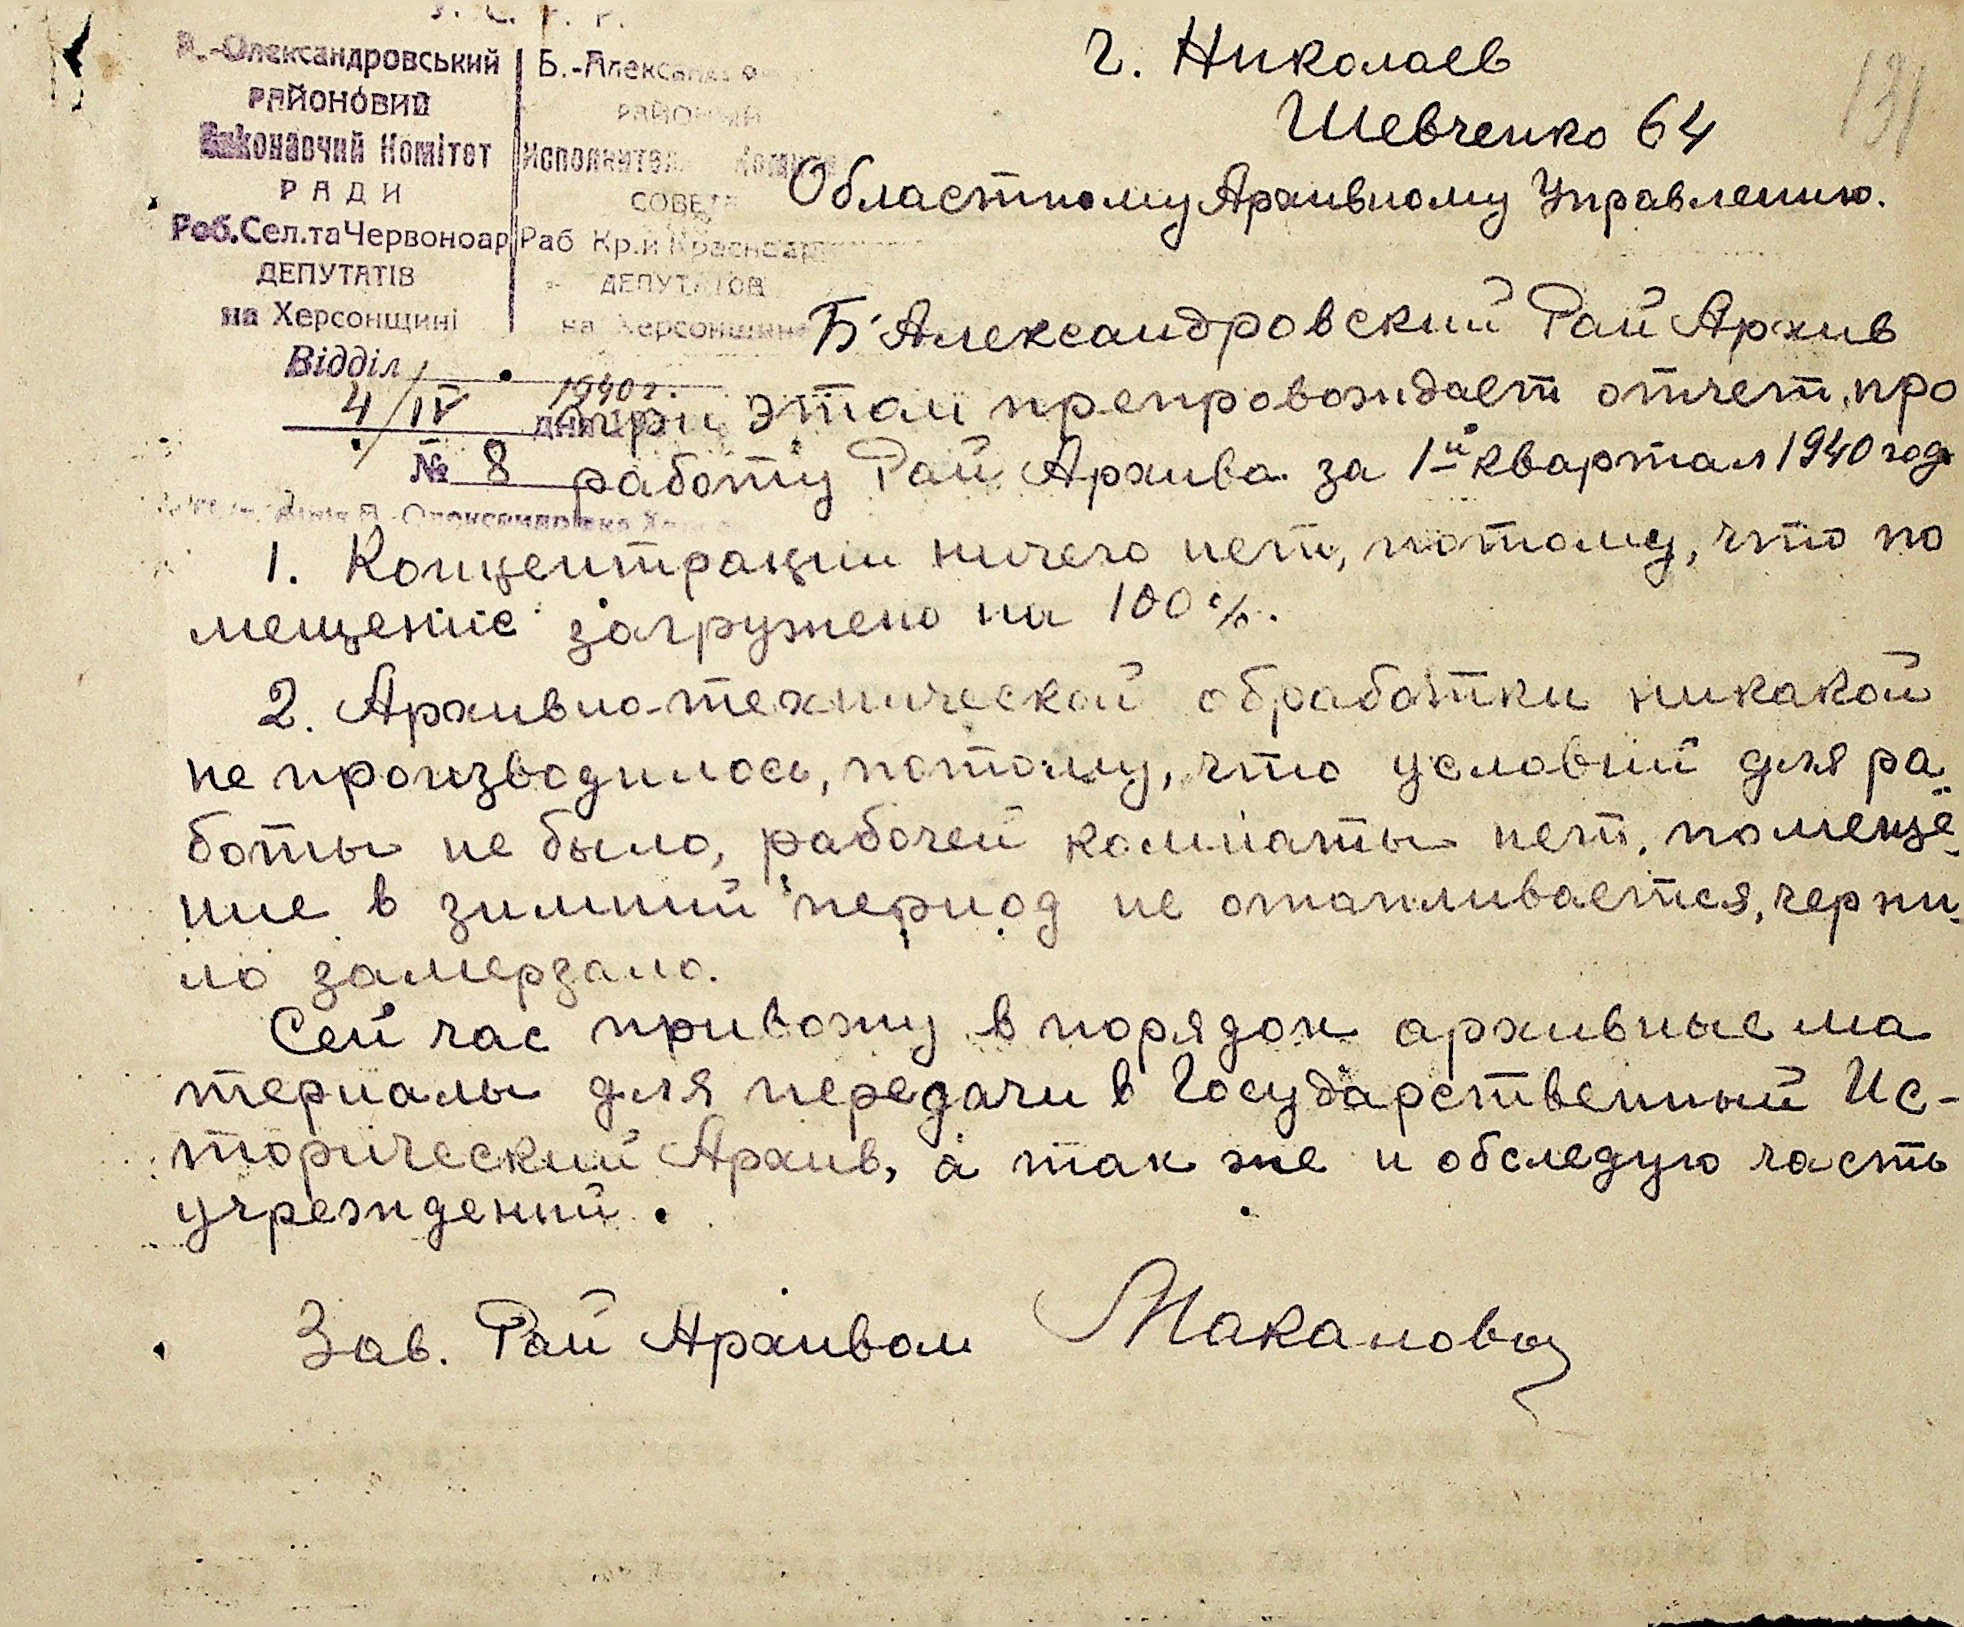 У. С. Р. Р.
В.-Олександровський
РАЙОНОВИЙ
Виконавчий Комітет
РАДИ
Роб. Сел. та Червоноар
ДЕПУТАТІВ
на Херсонщині
Відділ
4/IV 1940 г.
№ 8
Б.-Александров
РАЙОННЫЙ
Исполнител Комитет
СОВЕТА
Раб Кр. и Красноар
ДЕПУТАТОВ
на Херсонщине
131
г. Николаев
Шевченко 64
Областному Архивному Управлению.
Б-Александровский Рай Архив
при этом препровождает отчет, про
работу Рай Архива за 1й квартал 1940 года
1. Концентрации ничего нет, потому, что по
мещение загружено на 100%.
2. Архивно-технической обработки никакой
не производилось, потому, что условий для ра
боты не было, рабочей комнаты нет, помеще-
ние в зимний период не отапливается, черни-
ло замерзало.
Сей час привожу в порядок архивные ма
териалы для передачи в Государственный Ис-
торический Архив, а так же и обследую часть
учреждений.
Зав. Рай Архивом Макаловоз